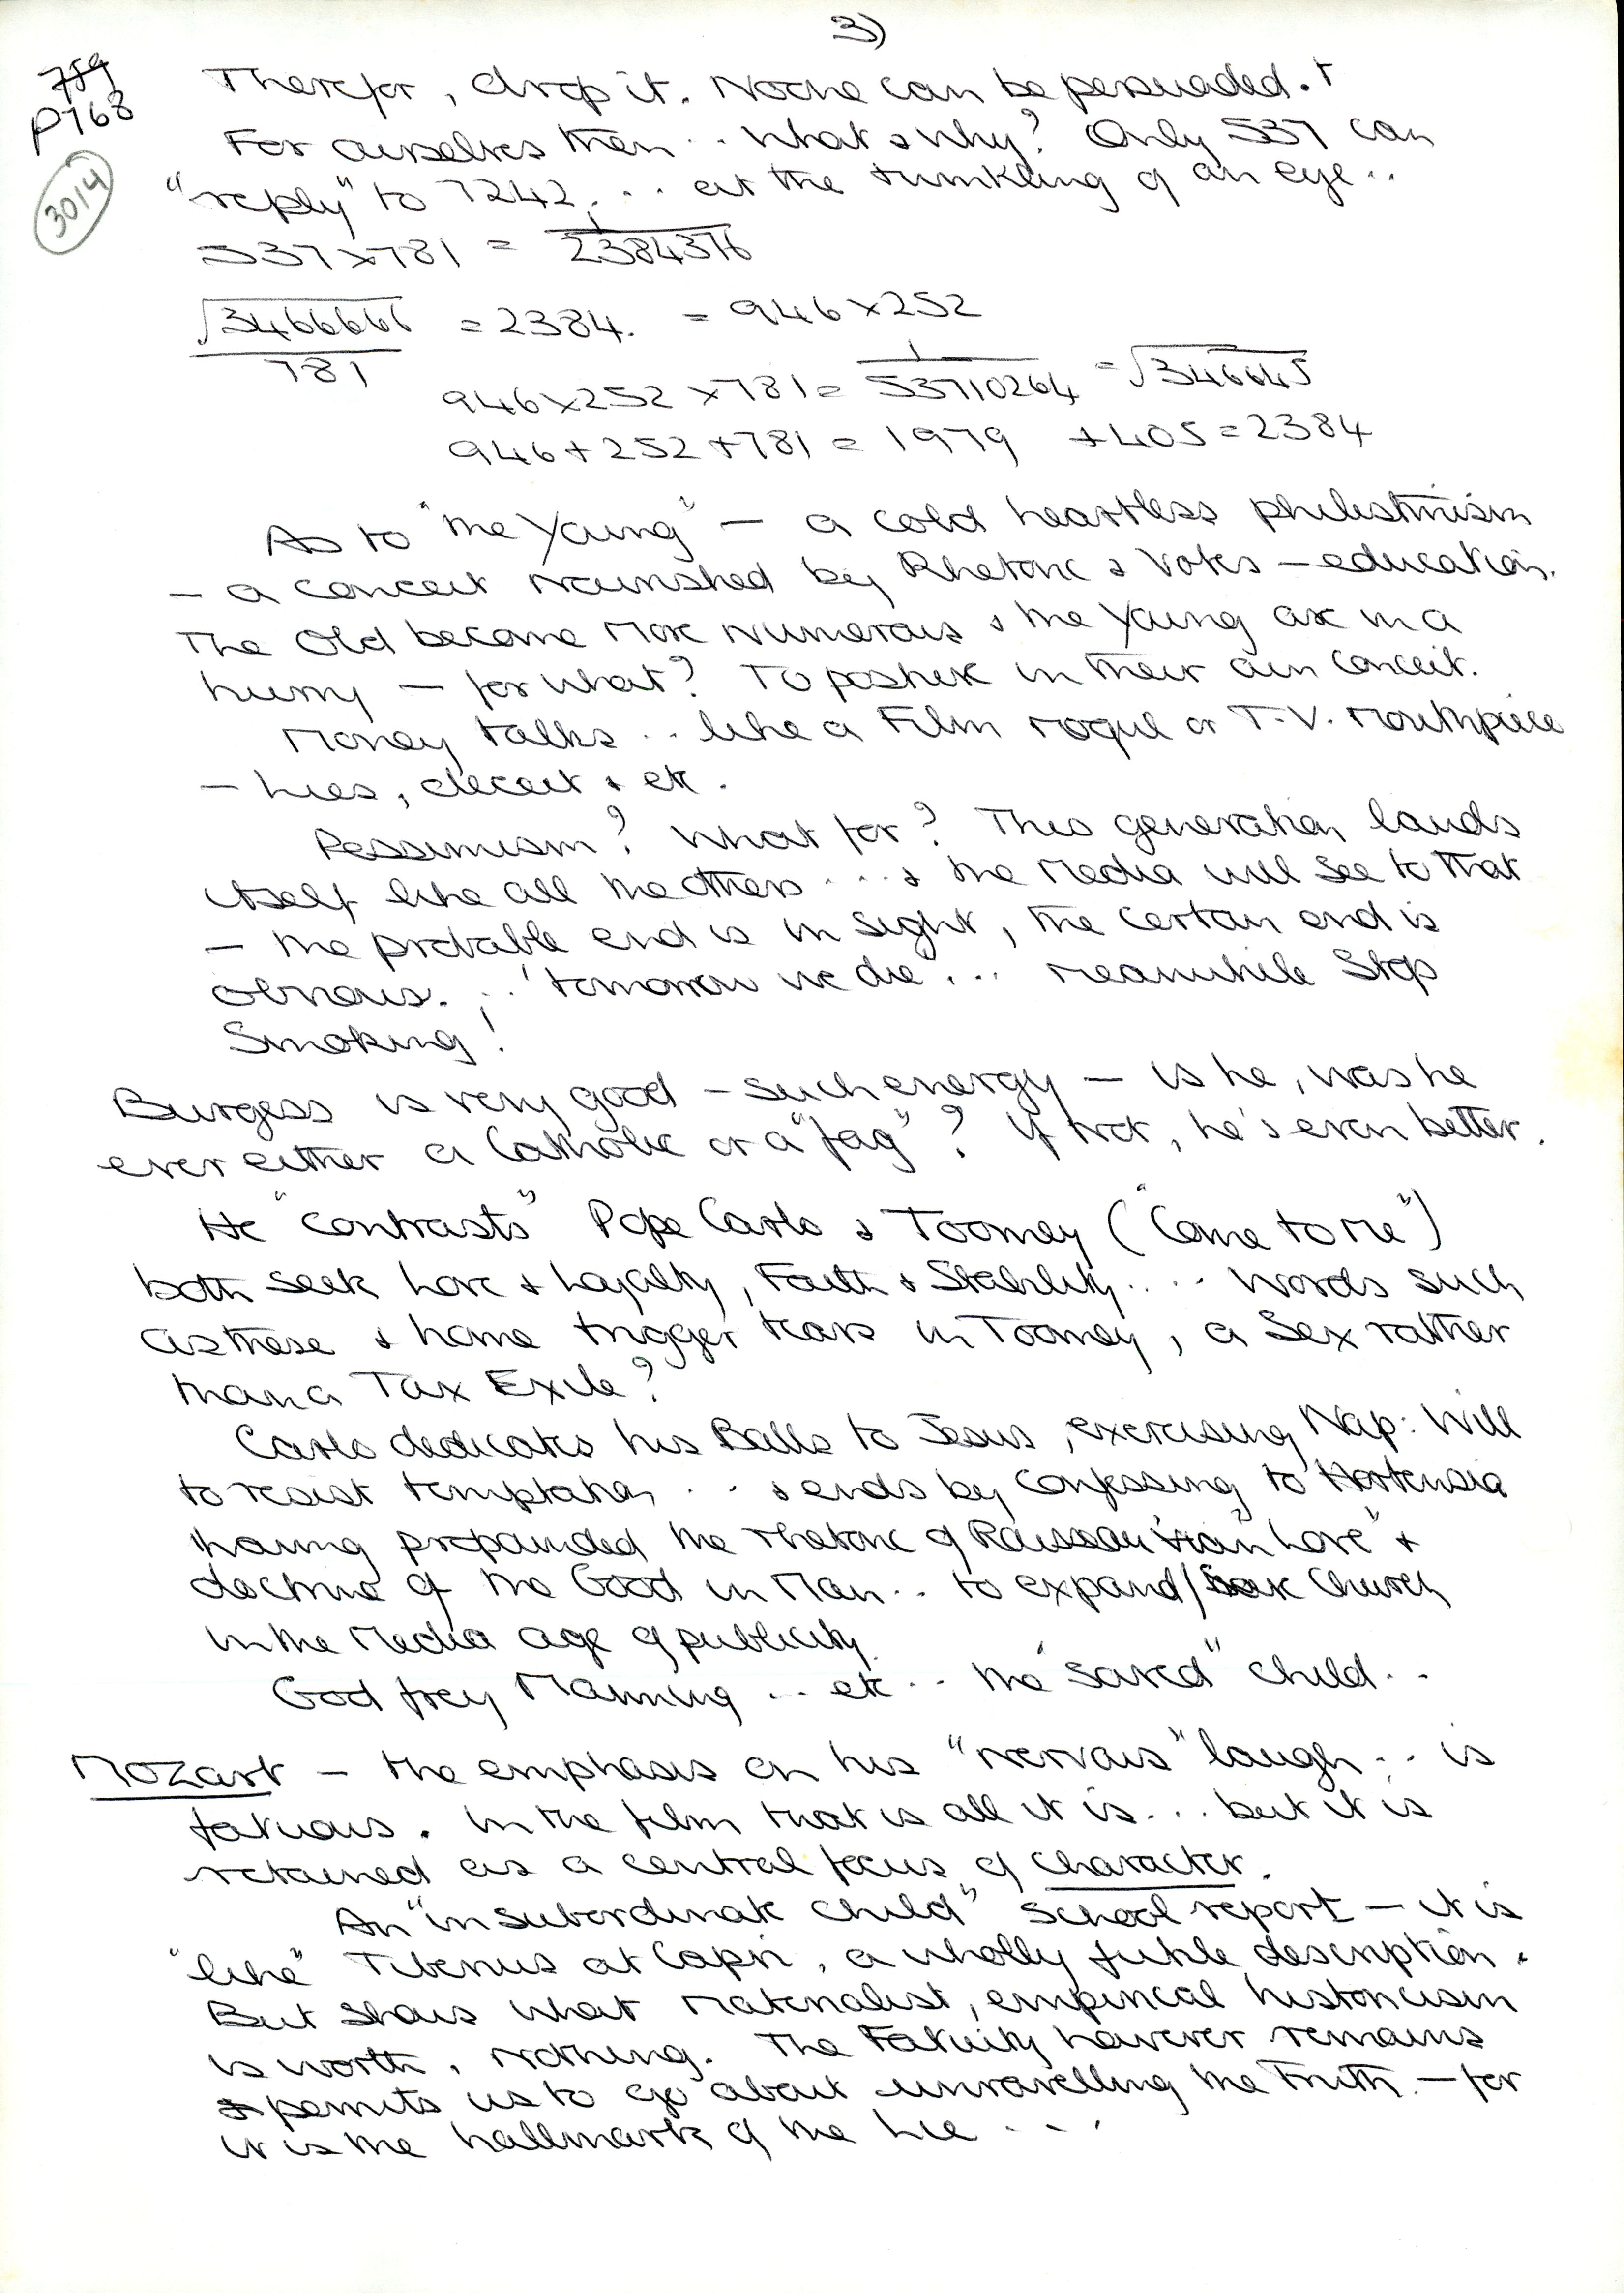 3)
789
P768
3014
Therefor, drop it. Noone can be persuaded. +
For ourselves then .. What & Why? Only 537 can
"reply" to 7242 ... at the twinkling of an eye ..
537 x 781 = 1/2384376
√3466666/781 = 2384. = 946 x 252
946 x 252 x 781 = 1/53710264 = √346645
946 + 252 + 781 = 1979 + 405 = 2384
As to "the Young" — a cold heartless philistinism
— a conceit nourished by Rhetoric & Votes — education.
The Old become More Numerous & the Young are in a
hurry — for what? To posture in their own conceit.
Money talks .. like a Film mogul or T.V. Mouthpiece
— Lies, deceit & etc.
Pessimism? What for? This generation lauds
itself like all the others .... & the Media will see to that
— the probable end is in sight, the certain end is
obvious. .. 'tomorrow we die' ... meanwhile Stop
Smoking!
Burgess is very good — such energy — is he, was he
ever either a Catholic or a "fag"? If not, he's even better.
He "contrasts" Pope Carlo & Toomey ("Come to Me")
both seek Love & Loyalty, Faith & Stability .... Words such
as these & home trigger tears in Toomey, a Sex rather
than a Tax Exile?
Carlo dedicates his Balls to Jesus, exercising Nap: Will
to resist temptation .. & ends by confessing to Hortensia
having propounded the rhetoric of Rousseau'ian "Love" &
doctrine of the Good in Man .. to expand / Church
in the Media age of publicity.
Godfrey Manning .. etc .. the "saved" child ..
Mozart — the emphasis on his "nervous" laugh .. is
fatuous. In the film that is all it is ... but it is
retained as a central focus of character.
An "insubordinate child" school report — it is
"like" Tiberius at Capri, a wholly futile description.
But shows what Materialist, empirical historicism
is worth, Nothing. The Fatuity however remains
& permits us to go about unravelling the Truth — for
it is the hallmark of the Lie ...